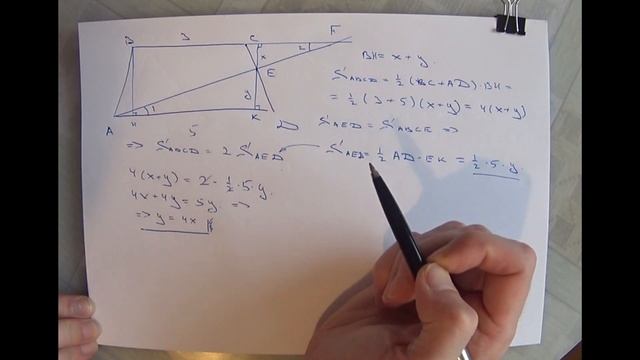 B 3 C F
2
x
E
y
1
A H K D
5
BH = x + y.
S ABCD = 1/2 (BC + AD) · BH =
= 1/2 (3 + 5) (x + y) = 4(x + y)
S AED = S ABCE =>
=> S ABCD = 2 S AED
S AED = 1/2 AD · EK = 1/2 · 5 · y.
4(x+y) = 2 · 1/2 · 5 · y.
4x + 4y = 5y =>
=> y = 4x